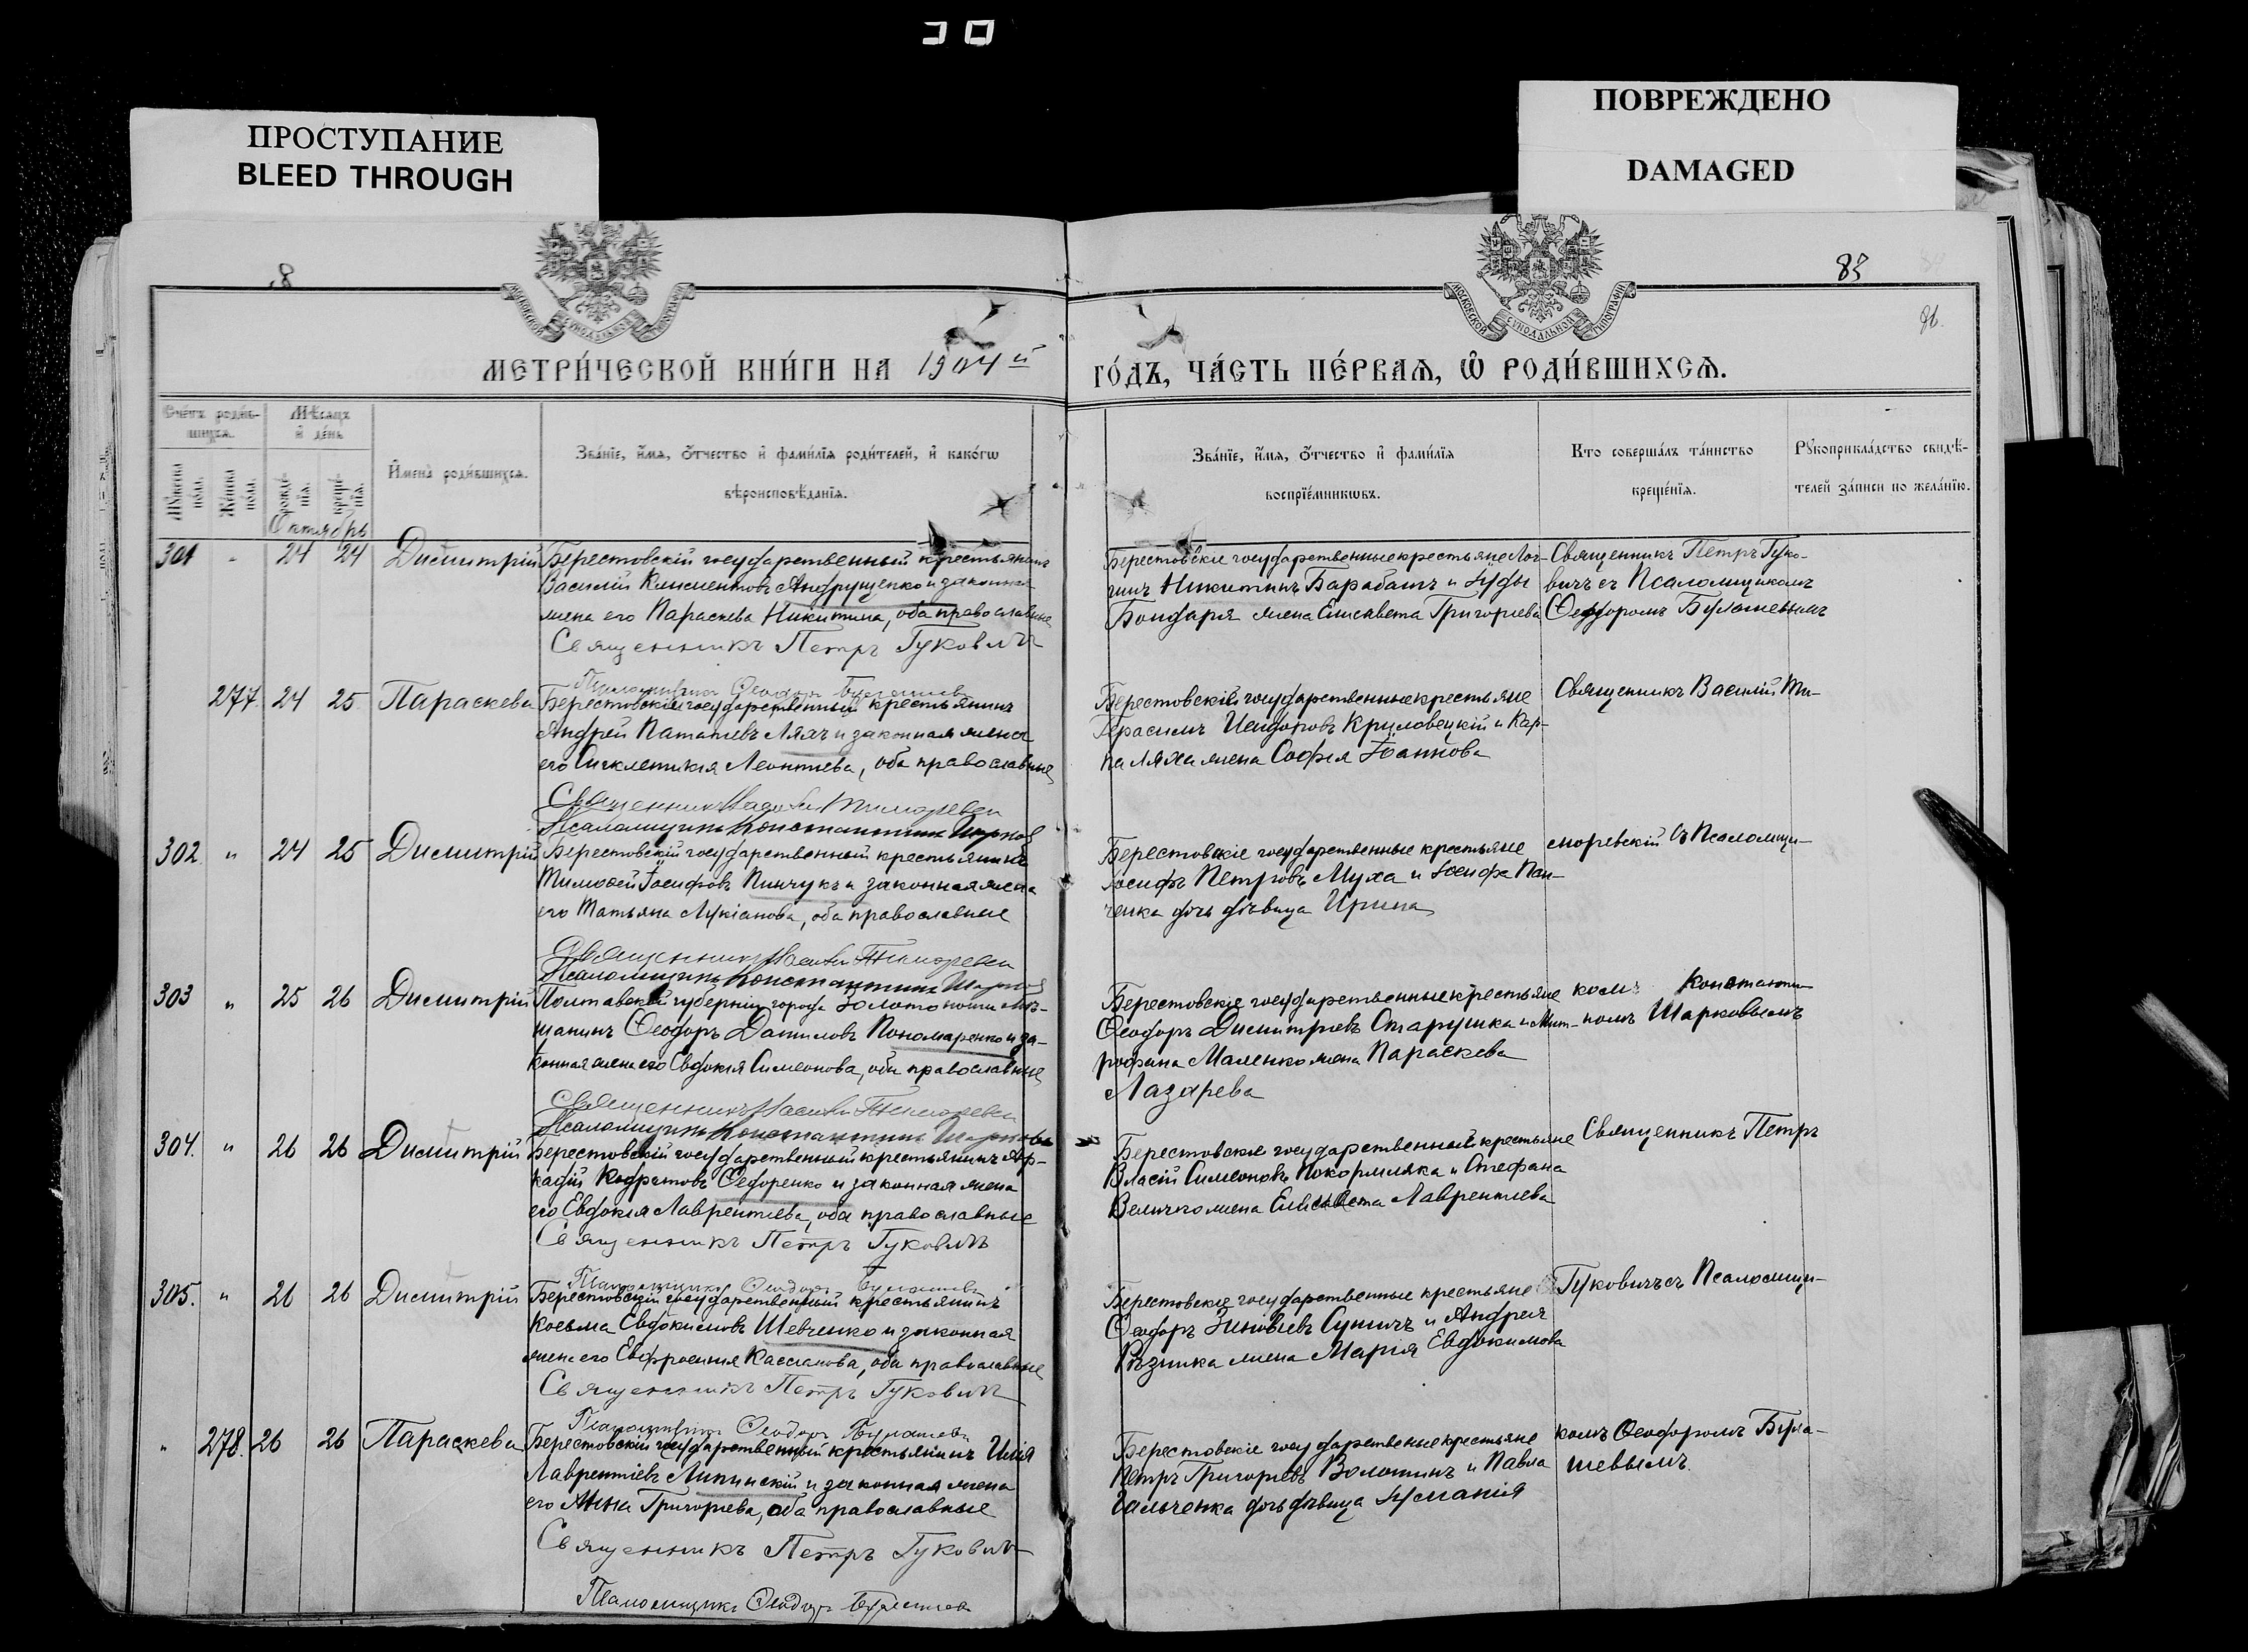 ПРОСТУПАНИЕ
BLEED THROUGH
ПОВРЕЖДЕНО
DAMAGED
8
83
МОСКОВСКОЙ СѴНОДАЛЬНОЙ ТИПОГРАФІИ
МОСКОВСКОЙ СѴНОДАЛЬНОЙ ТИПОГРАФІИ
МЕТРИ́ЧЕСКОЙ КНИ́ГИ НА 1904 й
ГО́ДЪ, ЧА́СТЬ ПЕ́РВАѦ, Ѿ РОДИ́ВШИХСѦ.
Счетъ роди́в-
шихся.
Мѣсяцъ
и де́нь
Мужеска пола.
Женска пола.
рожде-
нія.
креще-
нія.
Имена̀ роди́вшихся.
Зва́нїе, и҆́мѧ, ѻ҆́тчество и҆ фами́лїѧ роди́телей, и҆ како́гѡ
вѣроисповѣ́данїѧ.
Зва́нїе, и҆́мѧ, ѻ҆́тчество и҆ фами́лїѧ
воспрїе́мникѡвъ.
Кто соверша́лъ та́инство
креще́нїѧ.
Рꙋкоприкла́дство свидѣ́-
телей за́писи по жела́нїю.
Октябрь
301 - 24 24 Димитрій
Берестовскій государственный крестьянинъ
Василій Климентовъ Андрущенко и законная
жена его Параскева Никитина, оба православные
Священникъ Петръ Гуковичъ
Берестовскіе государственные крестьяне Лог-
гинъ Никитинъ Барабашъ и Іуды
Бондаря жена Елисавета Григориева
Священникъ Петръ Гуко-
вичъ съ Псаломщикомъ
Ѳеодоромъ Булашевымъ
Псаломщикъ Ѳеодоръ Булашевъ
277. 24 25 Параскева
Берестовскій государственный крестьянинъ
Андрей Ляхъ и законная жена
его Синклитикія Леонтиева, оба православные
Священникъ Василій Тиморевскій
Псаломщикъ Константинъ Шарковъ
Берестовскіе государственные крестьяне
Герасимъ Исидоровъ Криловецкій и Кар-
па Ляха жена Софія Іоаннова
Священникъ Василій Ти-
302. " 24 25 Димитрій
Берестовскій государственный крестьянинъ
Тимоѳей Іосифовъ Пинчукъ и законная жена
его Татьяна Лукіанова, оба православные
Священникъ Василій Тиморевскій
Псаломщикъ Константинъ Шарковъ
Берестовскіе государственные крестьяне
Іосифъ Петровъ Муха и Іосифа Пан-
ченка дочь дѣвица Ирина
моревскій съ Псаломщи-
303 " 25 26 Димитрій
Полтавской губерніи города Золотоноши мѣ-
щанинъ Ѳеодоръ Даниловъ Пономаренко и за-
конная жена его Евдокія Симеонова, оба православные
Священникъ Василій Тиморевскій
Псаломщикъ Константинъ Шарковъ
Берестовскіе государственные крестьяне
Ѳеодоръ Димитриевъ Старушка и Мит-
рофана Маленко жена Параскева
Лазарева
комъ Константи-
номъ Шарковымъ
304. " 26 26 Димитрій
Берестовскій государственный крестьянинъ Ар-
кадій Кодратовъ Ѳедоренко и законная жена
его Евдокія Лаврентиева, оба православные
Священникъ Петръ Гуковичъ
Псаломщикъ Ѳеодоръ Булашевъ
Берестовскіе государственные крестьяне
Власій Симеоновъ Покормляка и Стефана
Величко жена Елисавета Лаврентиева
Священникъ Петръ
305. " 26 26 Димитрій
Берестовскій государственный крестьянинъ
Косьма Евдокимовъ Шевченко и законная
жена его Евфросинія Кассианова, оба православные
Священникъ Петръ Гуковичъ
Псаломщикъ Ѳеодоръ Булашевъ
Берестовскіе государственные крестьяне
Ѳеодоръ Зиновьевъ Сушичъ и Андрея
Рѣзника жена Марія Евдокимова
Гуковичъ съ Псаломщи-
" 278. 26 26 Параскева
Берестовскій государственный крестьянинъ Илія
Лаврентіевъ Липинскій и законная жена
его Анна Григориева, оба православные
Священникъ Петръ Гуковичъ
Псаломщикъ Ѳеодоръ Булашевъ
Берестовскіе государственные крестьяне
Петръ Григориевъ Волошинъ и Павла
Гальченка дочь дѣвица Іуліанія
комъ Ѳеодоромъ Була-
шевымъ.